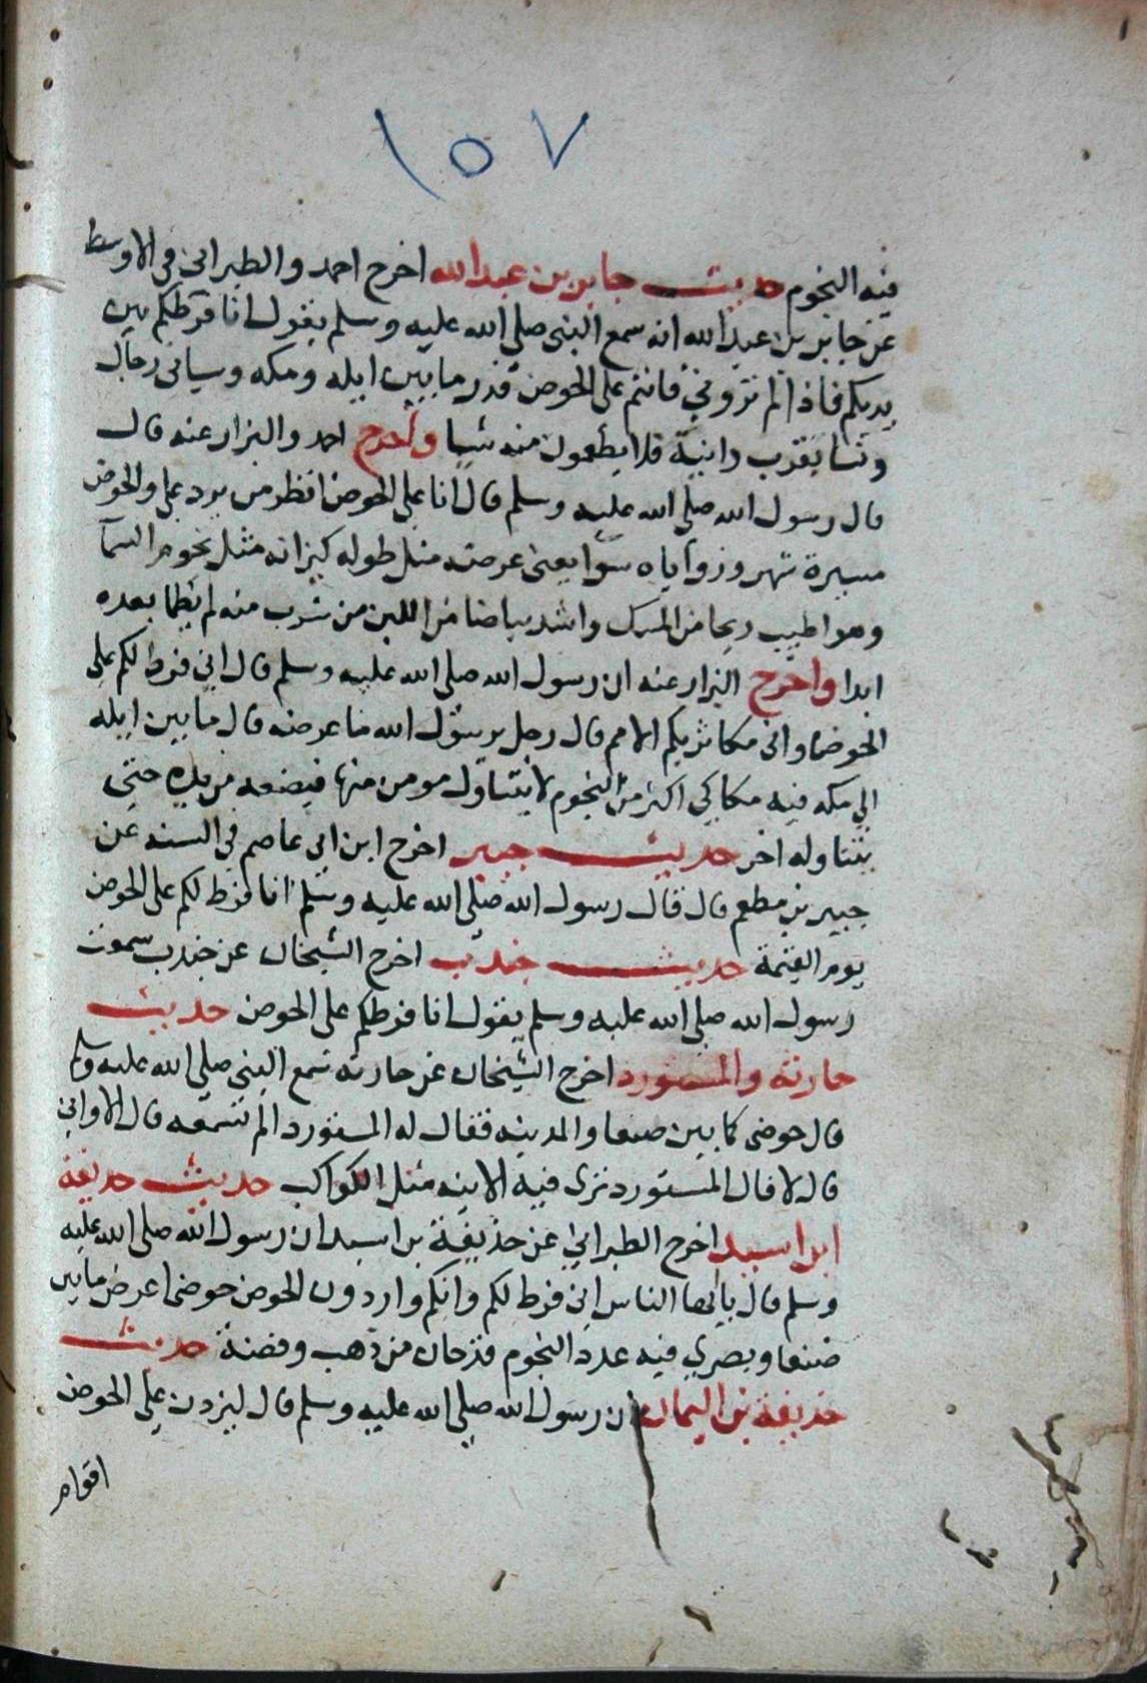 ١٥٧
فيه النجوم حديث جابر بن عبد الله اخرج احمد والطبراني في الاوسط
عن جابر بن عبد الله انه سمع النبي صلى الله عليه وسلم يقول انا فرطكم بين
يديكم فاذا لم تروني فانتم على الحوض قدر ما بين ايله ومكه وسياتي رجال
ونسا بقرب وانية فلا يطعمون منه شيا واخرج احمد والبزار عنه قال
قال رسول الله صلى الله عليه وسلم قال انا على الحوض انظر من يرد علي والحوض
مسيرة شهر وزواياه سوا يعني عرضه مثل طوله كيزانه مثل نجوم السمآ
وهو اطيب ريحا من المسك واشد بياضا من اللبن من شرب منه لم يظما بعده
ابدا واخرج البزار عنه ان رسول الله صلى الله عليه وسلم قال اني فرط لكم على
الحوض واني مكاثر بكم الامم قال رجل يرسول الله ما عرضه قال ما بين ايله
الي مكه فيه مكاكي اكثر من النجوم لا يتناول مومن منها فيضعه من يده حتى
يتناوله اخر حديث جبير اخرج ابن ابي عاصم في السنه عن
جبير بن مطعم قال قال رسول الله صلى الله عليه وسلم انا فرط لكم على الحوض
يوم القيمة حديث جندب اخرج الشيخان عن جندب سمعت
رسول الله صلى الله عليه وسلم يقول انا فرطكم على الحوض حديث
حارثة والمستورد اخرج الشيخان عن حارثه سمع النبي صلى الله عليه وسلم
قال حوضي كما بين صنعا والمدينه فقال له المستورد الم تسمعه قال الاواني
قال لا قال المستورد ترى فيه الانيه مثل الكواكب حديث حذيفة
ابن اسيد اخرج الطبراني عن حذيفة بن اسيد ان رسول الله صلى الله عليه
وسلم قال يايها الناس اني فرط لكم وانكم واردون الحوض حوضي اعرض ما بين
صنعا وبصري فيه عدد النجوم قدحان من ذهب وفضة حديث
حذيفة بن اليمان ان رسول الله صلى الله عليه وسلم قال ليردن على الحوض
اقوام